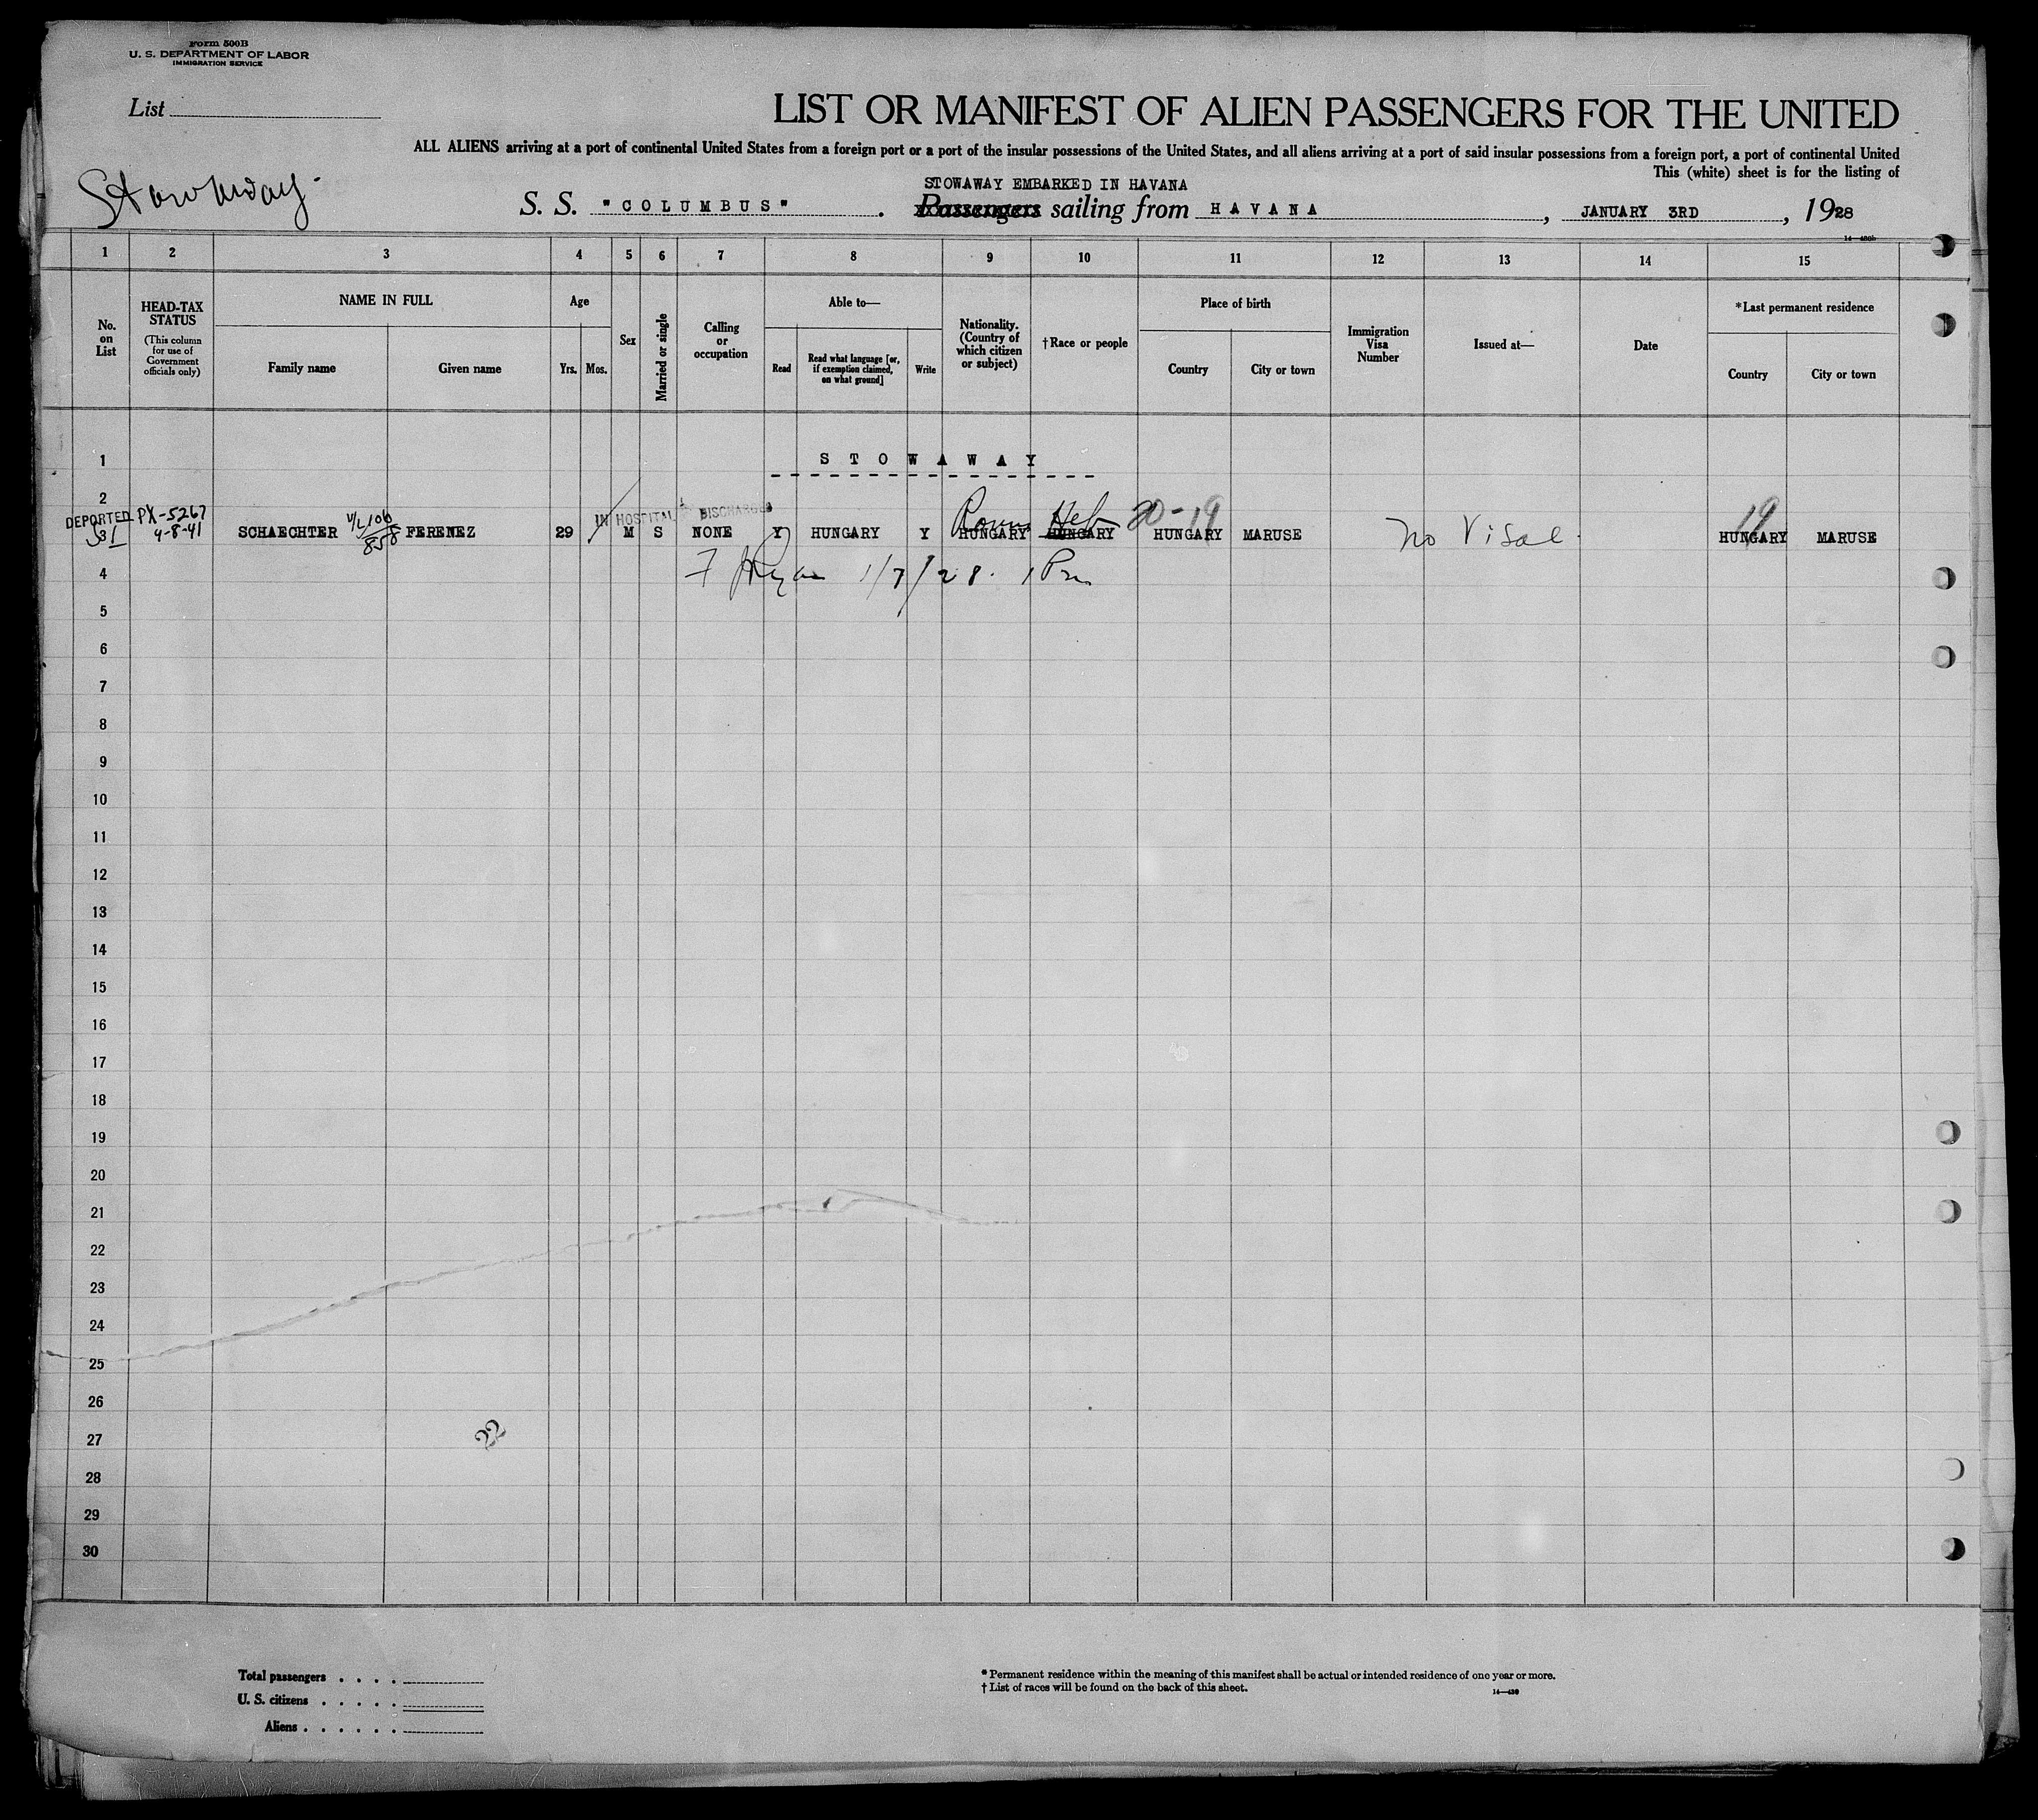 Form 500B
U. S. DEPARTMENT OF LABOR
IMMIGRATION SERVICE
List
LIST OR MANIFEST OF ALIEN PASSENGERS FOR THE UNITED
ALL ALIENS arriving at a port of continental United States from a foreign port or a port of the insular possessions of the United States, and all aliens arriving at a port of said insular possessions from a foreign port, a port of continental United
This (white) sheet is for the listing of
Stowaway
STOWAWAY EMBARKED IN HAVANA
S. S. "COLUMBUS" . Passengers sailing from HAVANA, JANUARY 3RD, 1928
1 2 3 4 5 6 7 8 9 10 11 12 13 14 15
No. on List
HEAD-TAX STATUS
(This column for use of Government officials only)
NAME IN FULL
Family name
Given name
Age
Yrs. Mos.
Sex
Married or single
Calling or occupation
Able to—
Read
Read what language [or, if exemption claimed, on what ground]
Write
Nationality. (Country of which citizen or subject)
†Race or people
Place of birth
Country
City or town
Immigration Visa Number
Issued at—
Date
*Last permanent residence
Country
City or town
1 STOWAWAY
2
DEPARTED PX-5267 IN HOSPITAL DISCHARGED Roum Heb 20-19 19
4-8-41 SCHAECHTER V/L 106/858 FERENEZ 29 M S NONE Y HUNGARY Y HUNGARY HUNGARY HUNGARY MARUSE No Visae HUNGARY MARUSE
4 1/7/28. 1 Pm
5
6
7
8
9
10
11
12
13
14
15
16
17
18
19
20
21
22
23
24
25
26
27 22
28
29
30
Total passengers . . . .
U. S. citizens . . . . .
Aliens . . . . . .
* Permanent residence within the meaning of this manifest shall be actual or intended residence of one year or more.
† List of races will be found on the back of this sheet.
14—430